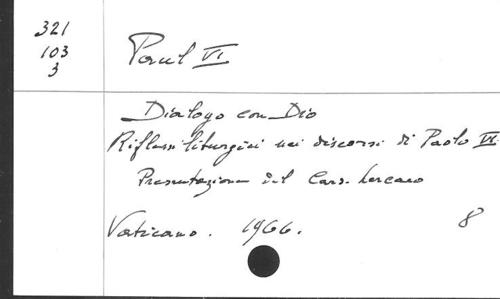 321
103
3
Paul VI
Dialogo con Dio
Riflessi liturgici nei discorsi di Paolo VI.
Presentazione del Card. Lercaro
Vaticano. 1966. 8